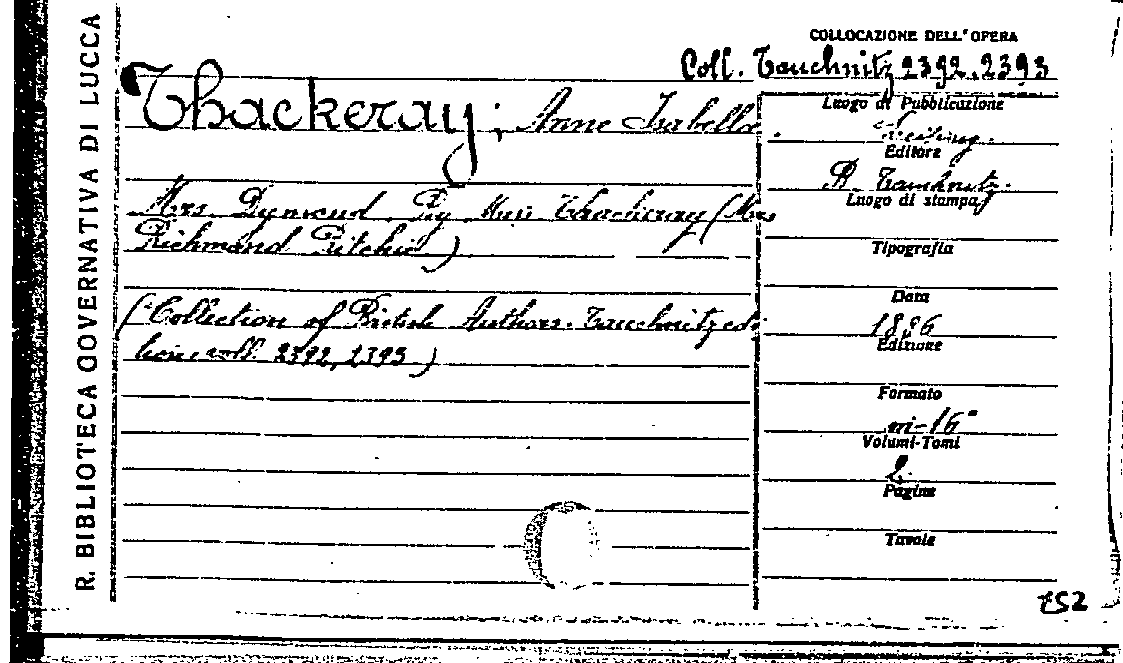 R. BIBLIOTECA GOVERNATIVA DI LUCCA
COLLOCAZIONE DELL'OPERA
Coll. Tauchnitz 2392, 2393
Thackeray, Anne Isabella.
Mrs. Dymond. By Miss Thackeray (Mrs
Richmond Ritchie)
(Collection of British Authors. Tauchnitz edi
tion: voll. 2392, 2393)
Luogo di Pubblicazione
Editore
B. Tauchnitz.
Luogo di stampa
Tipografia
Data
Edizione
Formato
in-16°
Volumi-Tomi
2.
Pagine
Tavole
752